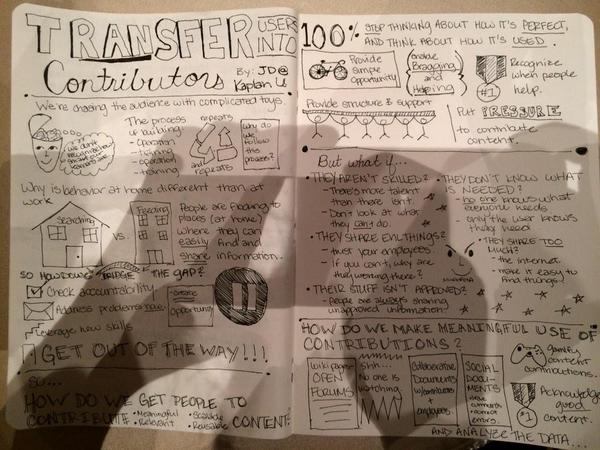 TRANSFER USERS
INTO
Contributors
By: JD @
Kaplan U.
We're chasing the audience with complicated toys.
The process
of building:
- operation
- training
- operation
- training
repeats
and
repeats
Why do
we
follow
this
process?
Why is behavior at home different than at
work
Searching
vs.
Feeding
People are flocking to
places (at home)
where they can
easily find and
share information.
SO HOW DOWE BRIDGE THE GAP?
Check accountability
Address problems now.
Leverage new skills
create
opportunity
GET OUT OF THE WAY!!!
SO...
HOW DO WE GET PEOPLE TO
CONTRIBUTE
• Meaningful
• Relevant
• Reusable
CONTENT?
100% STOP THINKING ABOUT HOW IT'S PERFECT,
AND THINK ABOUT HOW IT'S USED.
Provide
simple
opportunity
Enable
Bragging
and
Helping
#1
Recognize
when people
help.
Provide structure & support
Put PRESSURE
to contribute
content.
But what if...
• THEY AREN'T SKILLED?
- There's more talent
than there isn't.
- Don't look at what
they can't do.
• THEY SHARE EVIL THINGS?
- trust your employees.
if you can't, why are
they working there?
• THEIR STUFF ISN'T APPROVED?
- People are always sharing
unapproved information.
• THEY DON'T KNOW WHAT
IS NEEDED?
- no one knows what
everyone needs
- only the user knows
they need
• THEY SHARE TOO
MUCH?
- the internet.
- make it easy to
find things!
HOW DO WE MAKE MEANINGFUL USE OF
CONTRIBUTIONS?
Wiki pages
OPEN
FORUMS
shhh...
No one is
watching.
Collaborative
Documents
w/contributors
=
employees
SOCIAL
DOCU-
MENTS
- comments
- correct
errors.
gamify
content
contributions.
#1
Acknowledge
good
content.
AND ANALYZE THE DATA...